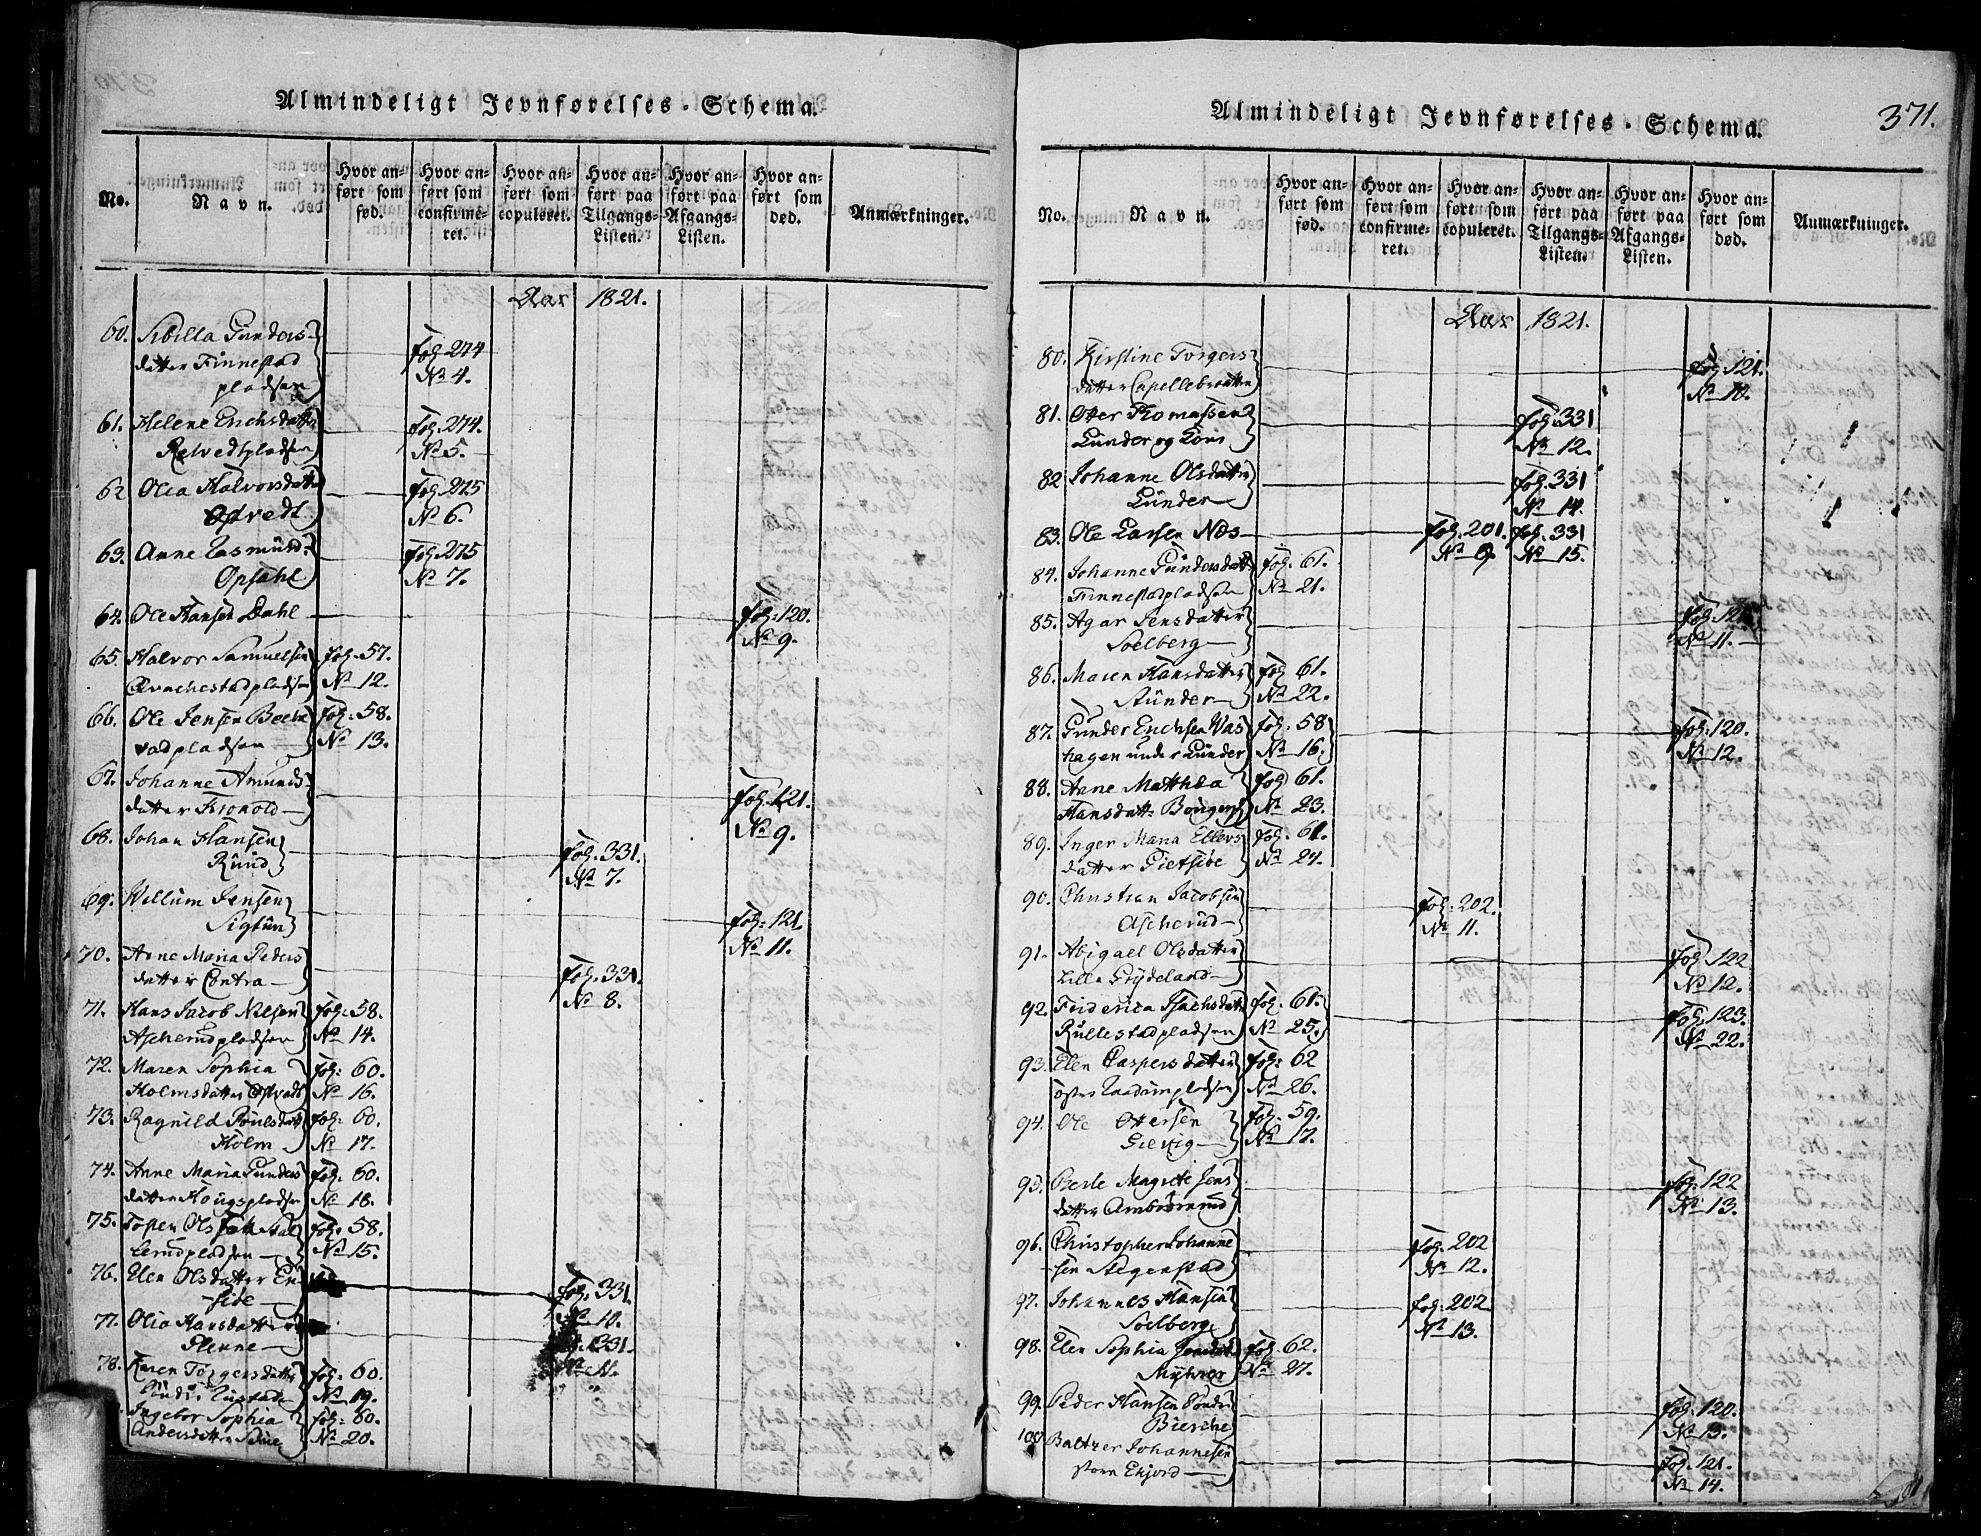 Almindeligt Jevnførelses-Schema.
No.
Navn.
Hvor anført som fød.
Hvor anført som confirmeret.
Hvor anført som copuleret.
Hvor anført paa Tilgangs-Listen.
Hvor anført paa Afgangs-Listen.
Hvor anført som død.
Anmærkninger.
Aar 1821.
60. Sibilla Gunders-
datter Finnestad fol. 274
pladsen No 4.
61. Helene Erichsdatter fol. 274.
Retvedtpladsen No 5.
62 Olea Halvorsdatter fol. 275
Ostvedt No 6.
63. Anne Rasmusd: fol. 275
Opsahl No 7.
64. Ole Hansen Dahl fol: 120.
No 9.
65. Halvor Samuelsen fol. 57.
No 12.
66. Ole Jensen fol: 58.
vadpladsen No 13.
67. Johanne Amunds-
datter fol. 121.
No 9.
68. Johan Hansen fol. 331.
Rund No 7.
69. Willum Jensen fol: 121
Sigtun No 11.
70. Anne Maria Peders
datter Contra fol. 331.
No 8.
71. Hans Jacob Nilsen fol: 58.
Ascherudpladsen No 14.
72. Maren Sophia fol: 60.
Holmsdatter No 16.
73. Ragnild Poulsdatt fol: 60.
Holm No 17.
74. Anne Maria Gunders fol: 60.
datter Hougspladsen No 18.
75. Olsen fol: 58.
lerudpladsen No 15.
76. Elen Olsdatter En-
-side fol. 331
No 10.
77. Olia Hansdatter 331
Glenne No 11.
78. Karen Torgersdatter fol: 60.
No 19.
Ingebor Sophia fol: 60.
Andersdatter No 20.
Almindeligt Jevnførelses-Schema.
371.
No.
Navn.
Hvor anført som fød.
Hvor anført som confirmeret.
Hvor anført som copuleret.
Hvor anført paa Tilgangs-Listen.
Hvor anført paa Afgangs-Listen.
Hvor anført som død.
Anmærkninger.
Aar 1821.
80. Kirstine Torgers fol. 121.
datter Capellebraatten No 10.
81. Otter Thomassen fol. 331
Lunder og No 12.
82 Johanne Olsdatter fol. 331
Lunder No 14.
83. Ole Larsen Næs fol. 201. fol. 331
No 9. No 15.
84. Johanne Gundersdatt fol. 61.
Finnestadpladsen No 21.
85. Agar Jensdatter fol. 121
Soelberg No 11.
86. Maren Hansdatter fol. 61.
No 22.
87. Gunder Erichsen Vas fol. 58 fol. 120.
hagen under Lunder No 16. No 12.
88. Anne Mathea fol. 61.
Hansdatt: No 23.
89. Inger Maria Ellevs fol. 61.
datter No 24.
90. Christian Jacobsen fol. 202.
Ascherud No 11.
91. Abigael Olsdatter fol. 122
Lille Grydeland No 12.
92. Friderica Isachsdatt fol. 61. fol. 123.
Rullestadpladsen No 25. No 22.
93. Elen Caspersdatter fol: 62
No 26.
94. Ole Ottersen fol. 59.
No 17.
95. Berte Magrete Jens fol. 122
datter No 13.
96. Christopher Johanne fol. 202
-sen Stegenstad No 12.
97. Johannes Hansen fol. 202
Soelberg No 13.
98. Elen Sophia fol. 62.
Myhrer No 27.
99. Peder Hansen Sondre fol. 120.
Bierche No 13.
100 Baltzer Johannesen fol. 121.
store Ekjord No 14.